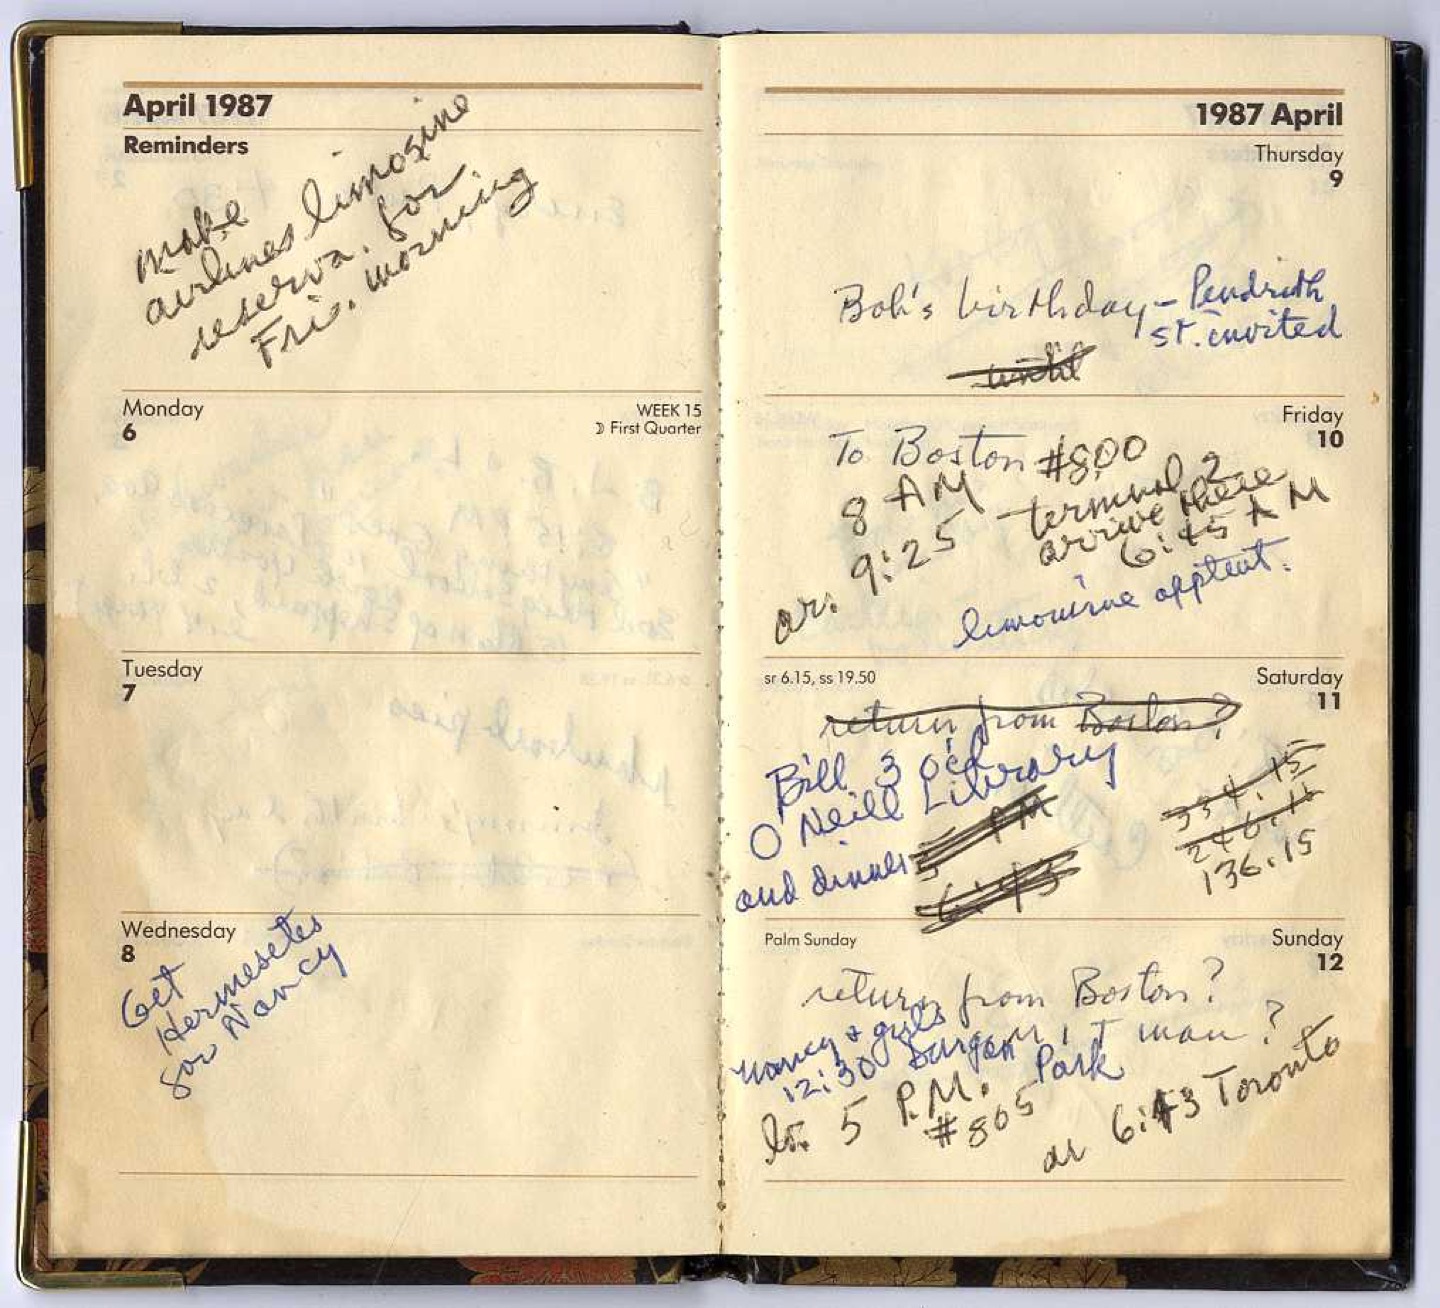 April 1987
Reminders
make
airlines limosine
reserva. for
Fri. morning
Monday
6
WEEK 15
☽ First Quarter
Tuesday
7
Wednesday
8
Get
Hermesetes
for Nancy
1987 April
Thursday
9
Bob's birthday - Pendrith
st. invited
until
Friday
10
To Boston #800
8 AM terminal 2
ar. 9:25 arrive there
6:45 AM
limousine apptent.
sr 6.15, ss 19.50
Saturday
11
return from Boston?
Bill 3 ocl
O'Neill Library
and dinner
5 PM
6:43
334.15
136.15
Palm Sunday
Sunday
12
return from Boston?
Nancy + girls
12:30 Park
lv. 5 P.M.
#805
ar 6:43 Toronto